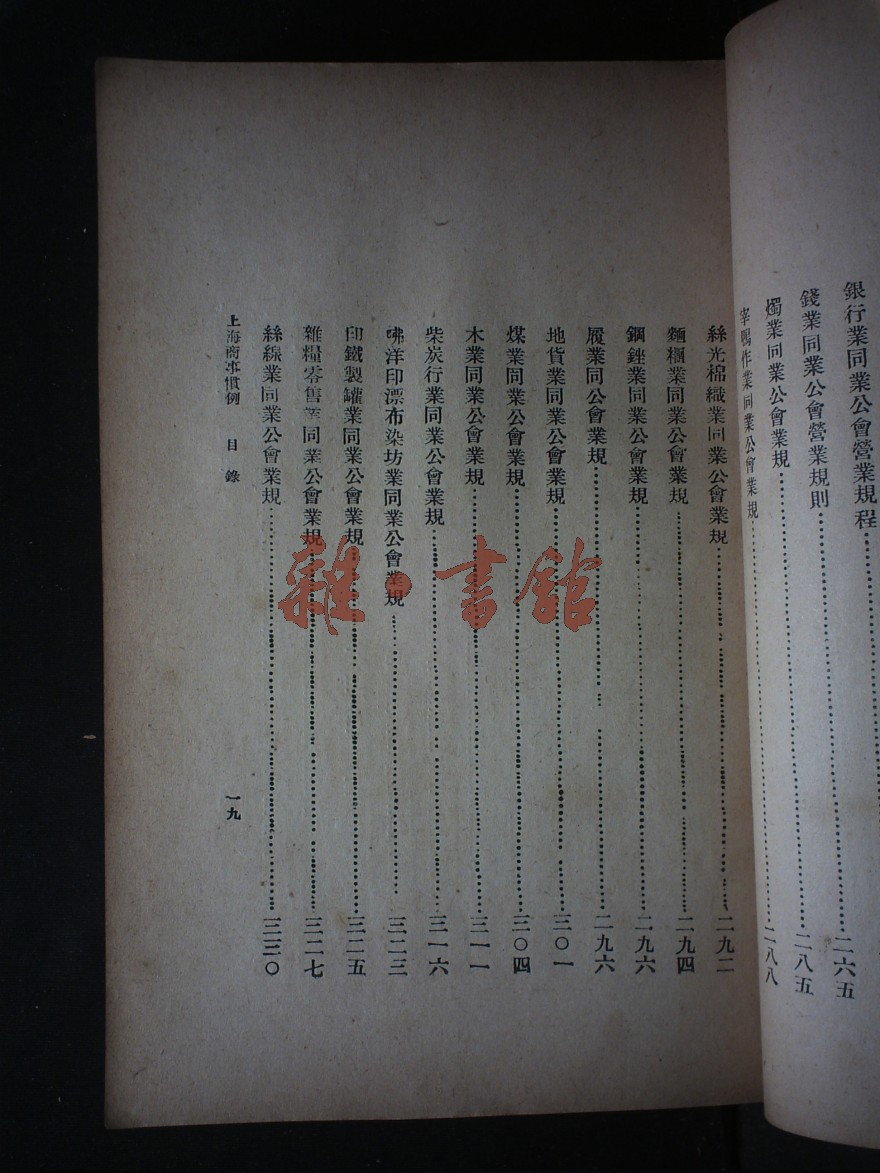 銀行業同業公會營業規程……二六五
錢業同業公會營業規則……二八五
燭業同業公會業規……二八八
宰鴨作業同業公會業規……
絲光棉織業同業公會業規……二九二
麵糰業同業公會業規……二九四
鋼銼業同業公會業規……二九六
履業同業公會業規……二九六
地貨業同業公會業規……三〇一
煤業同業公會業規……三〇四
木業同業公會業規……三一一
柴炭行業同業公會業規……三一六
咈洋印漂布染坊業同業公會業規……三二三
印鐵製罐業同業公會業規……三二五
雜糧零售業同業公會業規……三二七
絲線業同業公會業規……三三〇
上海商事慣例 目錄 一九
雜·書館